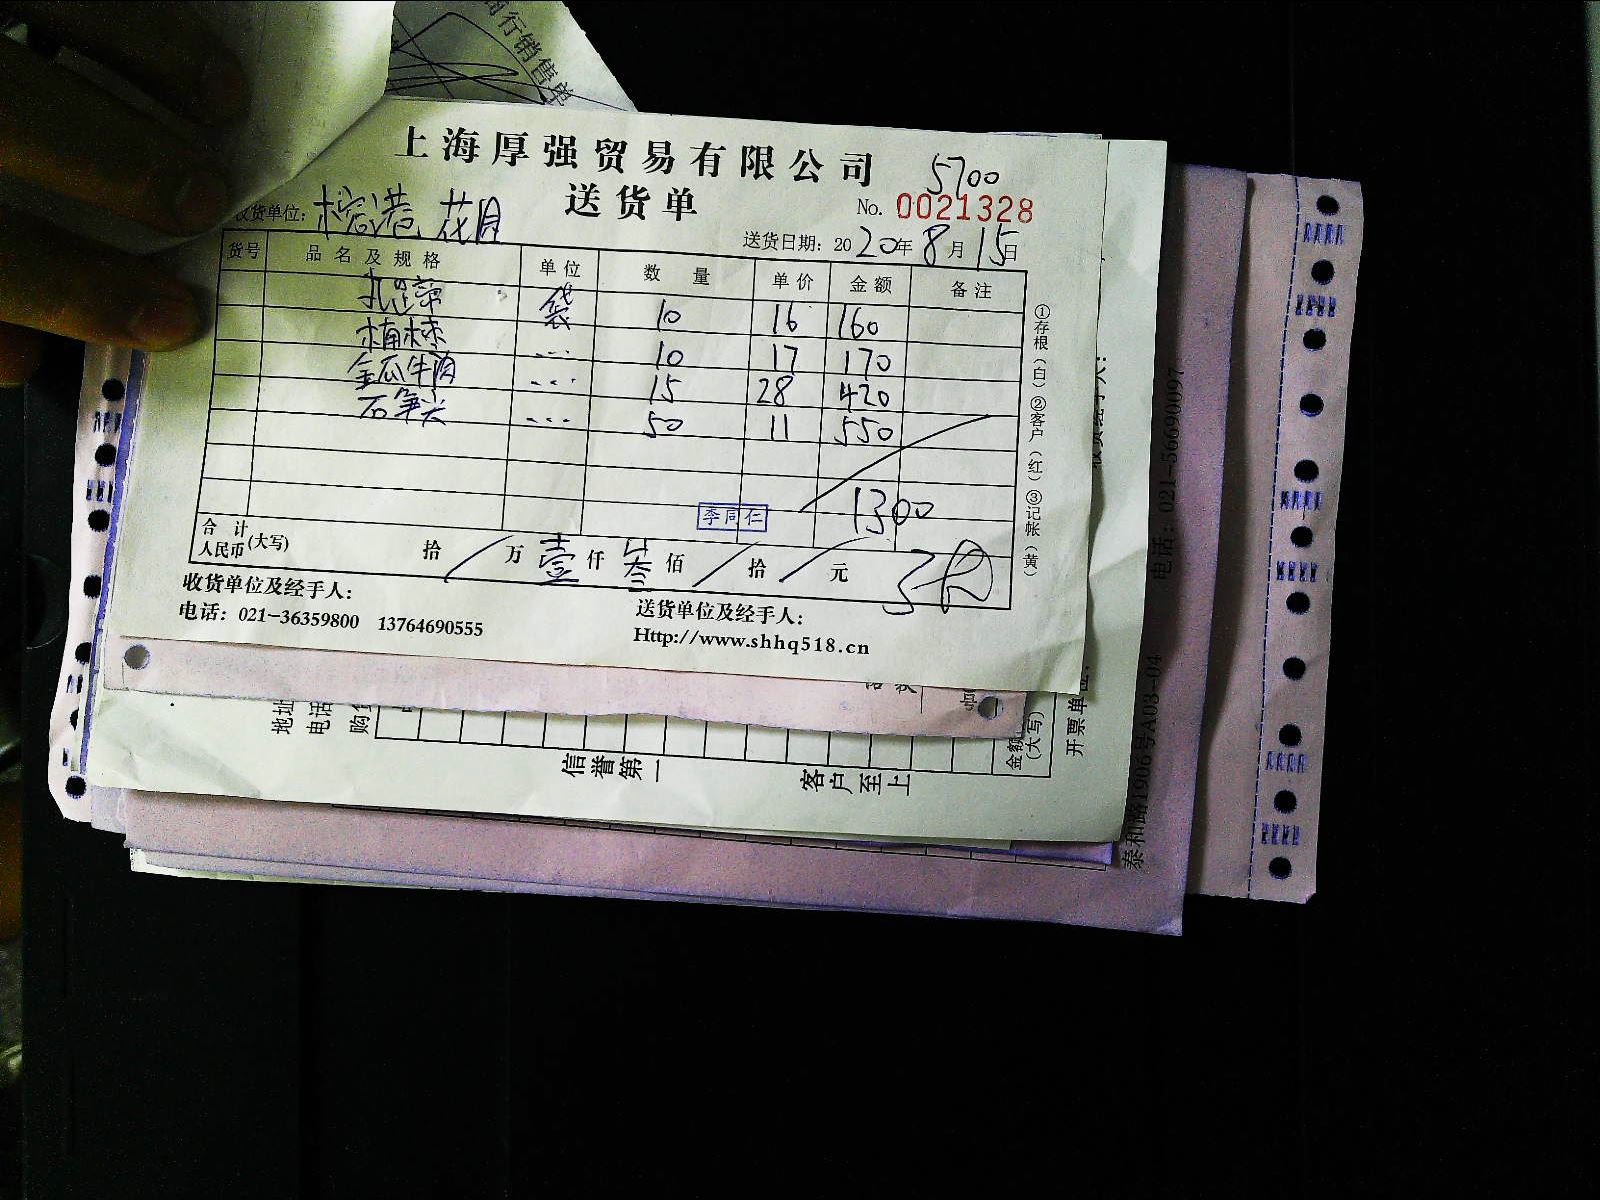 行销售单
上海厚强贸易有限公司
5700
送货单
No. 0021328
收货单位: 榕港 花月
送货日期: 2020年8月15日
货号 品名及规格 单位 数量 单价 金额 备注
袋 10 16 160
10 17 170
金瓜 15 28 420
石笋尖 50 11 550
1300
李同仁
合计人民币(大写) 拾 万 壹仟 叁佰 拾 元
①存根(白)②客户(红)③记帐(黄)
收货单位及经手人:
送货单位及经手人:
电话: 021-36359800 13764690555
Http://www.shhq518.cn
地址
电话
购
信誉第一
客户至上
金额(大写)
开票单位:
泰和路1906号A03-04 电话: 021-56690097